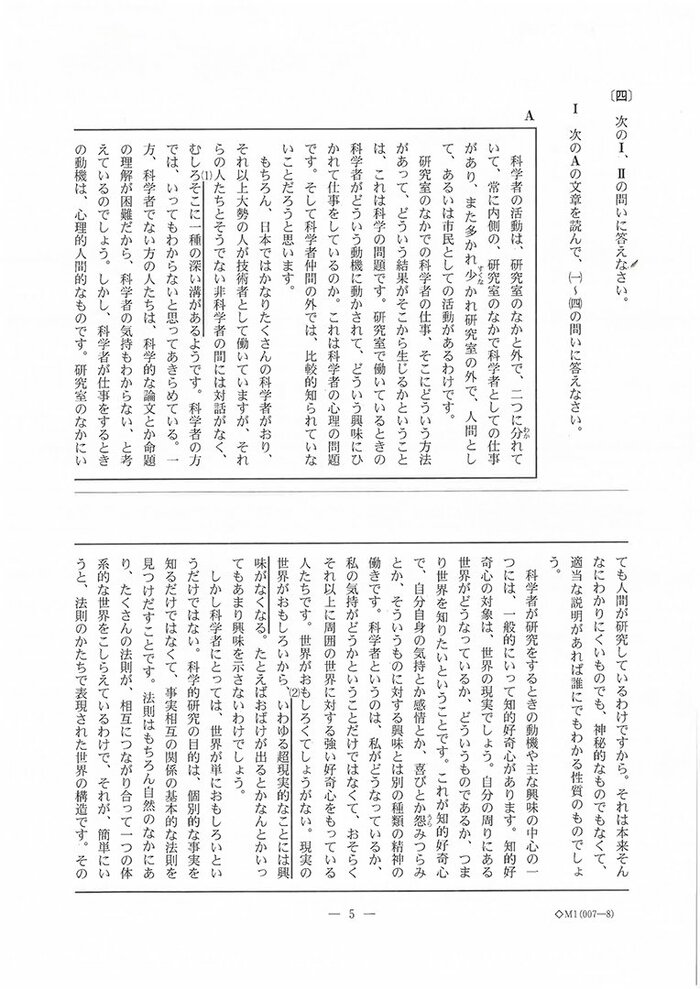 〔四〕 次のⅠ、Ⅱの問いに答えなさい。
Ⅰ 次のAの文章を読んで、㈠～㈣の問いに答えなさい。
A
科学者の活動は、研究室のなかと外で、二つに分れて
わか
いて、常に内側の、研究室のなかで科学者としての仕事
があり、また多かれ少かれ研究室の外で、人間とし
すくな
て、あるいは市民としての活動があるわけです。
研究室のなかでの科学者の仕事、そこにどういう方法
があって、どういう結果がそこから生じるかということ
は、これは科学の問題です。研究室で働いているときの
科学者がどういう動機に動かされて、どういう興味にひ
かれて仕事をしているのか。これは科学者の心理の問題
です。そして科学者仲間の外では、比較的知られていな
いことだろうと思います。
もちろん、日本ではかなりたくさんの科学者がおり、
それ以上大勢の人が技術者として働いていますが、それ
らの人たちとそうでない非科学者の間には対話がなく、
むしろそこに一種の深い溝があるようです。科学者の方
(1)
では、いってもわからないと思ってあきらめている。一
方、科学者でない方の人たちは、科学的な論文とか命題
の理解が困難だから、科学者の気持もわからない、と考
えているのでしょう。しかし、科学者が仕事をするとき
の動機は、心理的人間的なものです。研究室のなかにい
ても人間が研究しているわけですから。それは本来そん
なにわかりにくいものでも、神秘的なものでもなくて、
適当な説明があれば誰にでもわかる性質のものでしょ
う。
科学者が研究をするときの動機や主な興味の中心の一
つには、一般的にいって知的好奇心があります。知的好
奇心の対象は、世界の現実でしょう。自分の周りにある
世界がどうなっているか、どういうものであるか、つま
り世界を知りたいということです。これが知的好奇心
で、自分自身の気持とか感情とか、喜びとか怨みつらみ
うら
とか、そういうものに対する興味とは別の種類の精神の
働きです。科学者というのは、私がどうなっているか、
私の気持がどうかということだけではなくて、おそらく
それ以上に周囲の世界に対する強い好奇心をもっている
人たちです。世界がおもしろくてしょうがない。現実の
世界がおもしろいから、いわゆる超現実的なことには興
(2)
味がなくなる。たとえばおばけが出るとかなんとかいっ
てもあまり興味を示さないわけでしょう。
しかし科学者にとっては、世界が単におもしろいとい
うだけではない。科学的研究の目的は、個別的な事実を
知るだけではなくて、事実相互の関係の基本的な法則を
見つけだすことです。法則はもちろん自然のなかにあ
り、たくさんの法則が、相互につながり合って一つの体
系的な世界をこしらえているわけで、それが、簡単にい
うと、法則のかたちで表現された世界の構造です。その
— 5 —
◇M1(007—8)